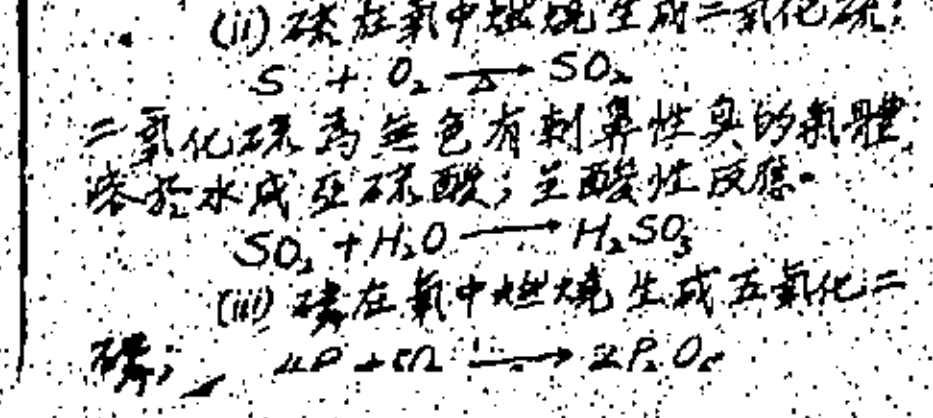 (ii) 硫在氧中燃燒生成二氧化硫:
S + O₂ —△→ SO₂
二氧化硫為無色有刺鼻性臭的氣體,
溶於水成亞硫酸;呈酸性反應。
SO₂ + H₂O ⟶ H₂SO₃
(iii) 磷在氧中燃燒生成五氧化二
磷; 4P + 5O₂ ⟶ 2P₂O₅